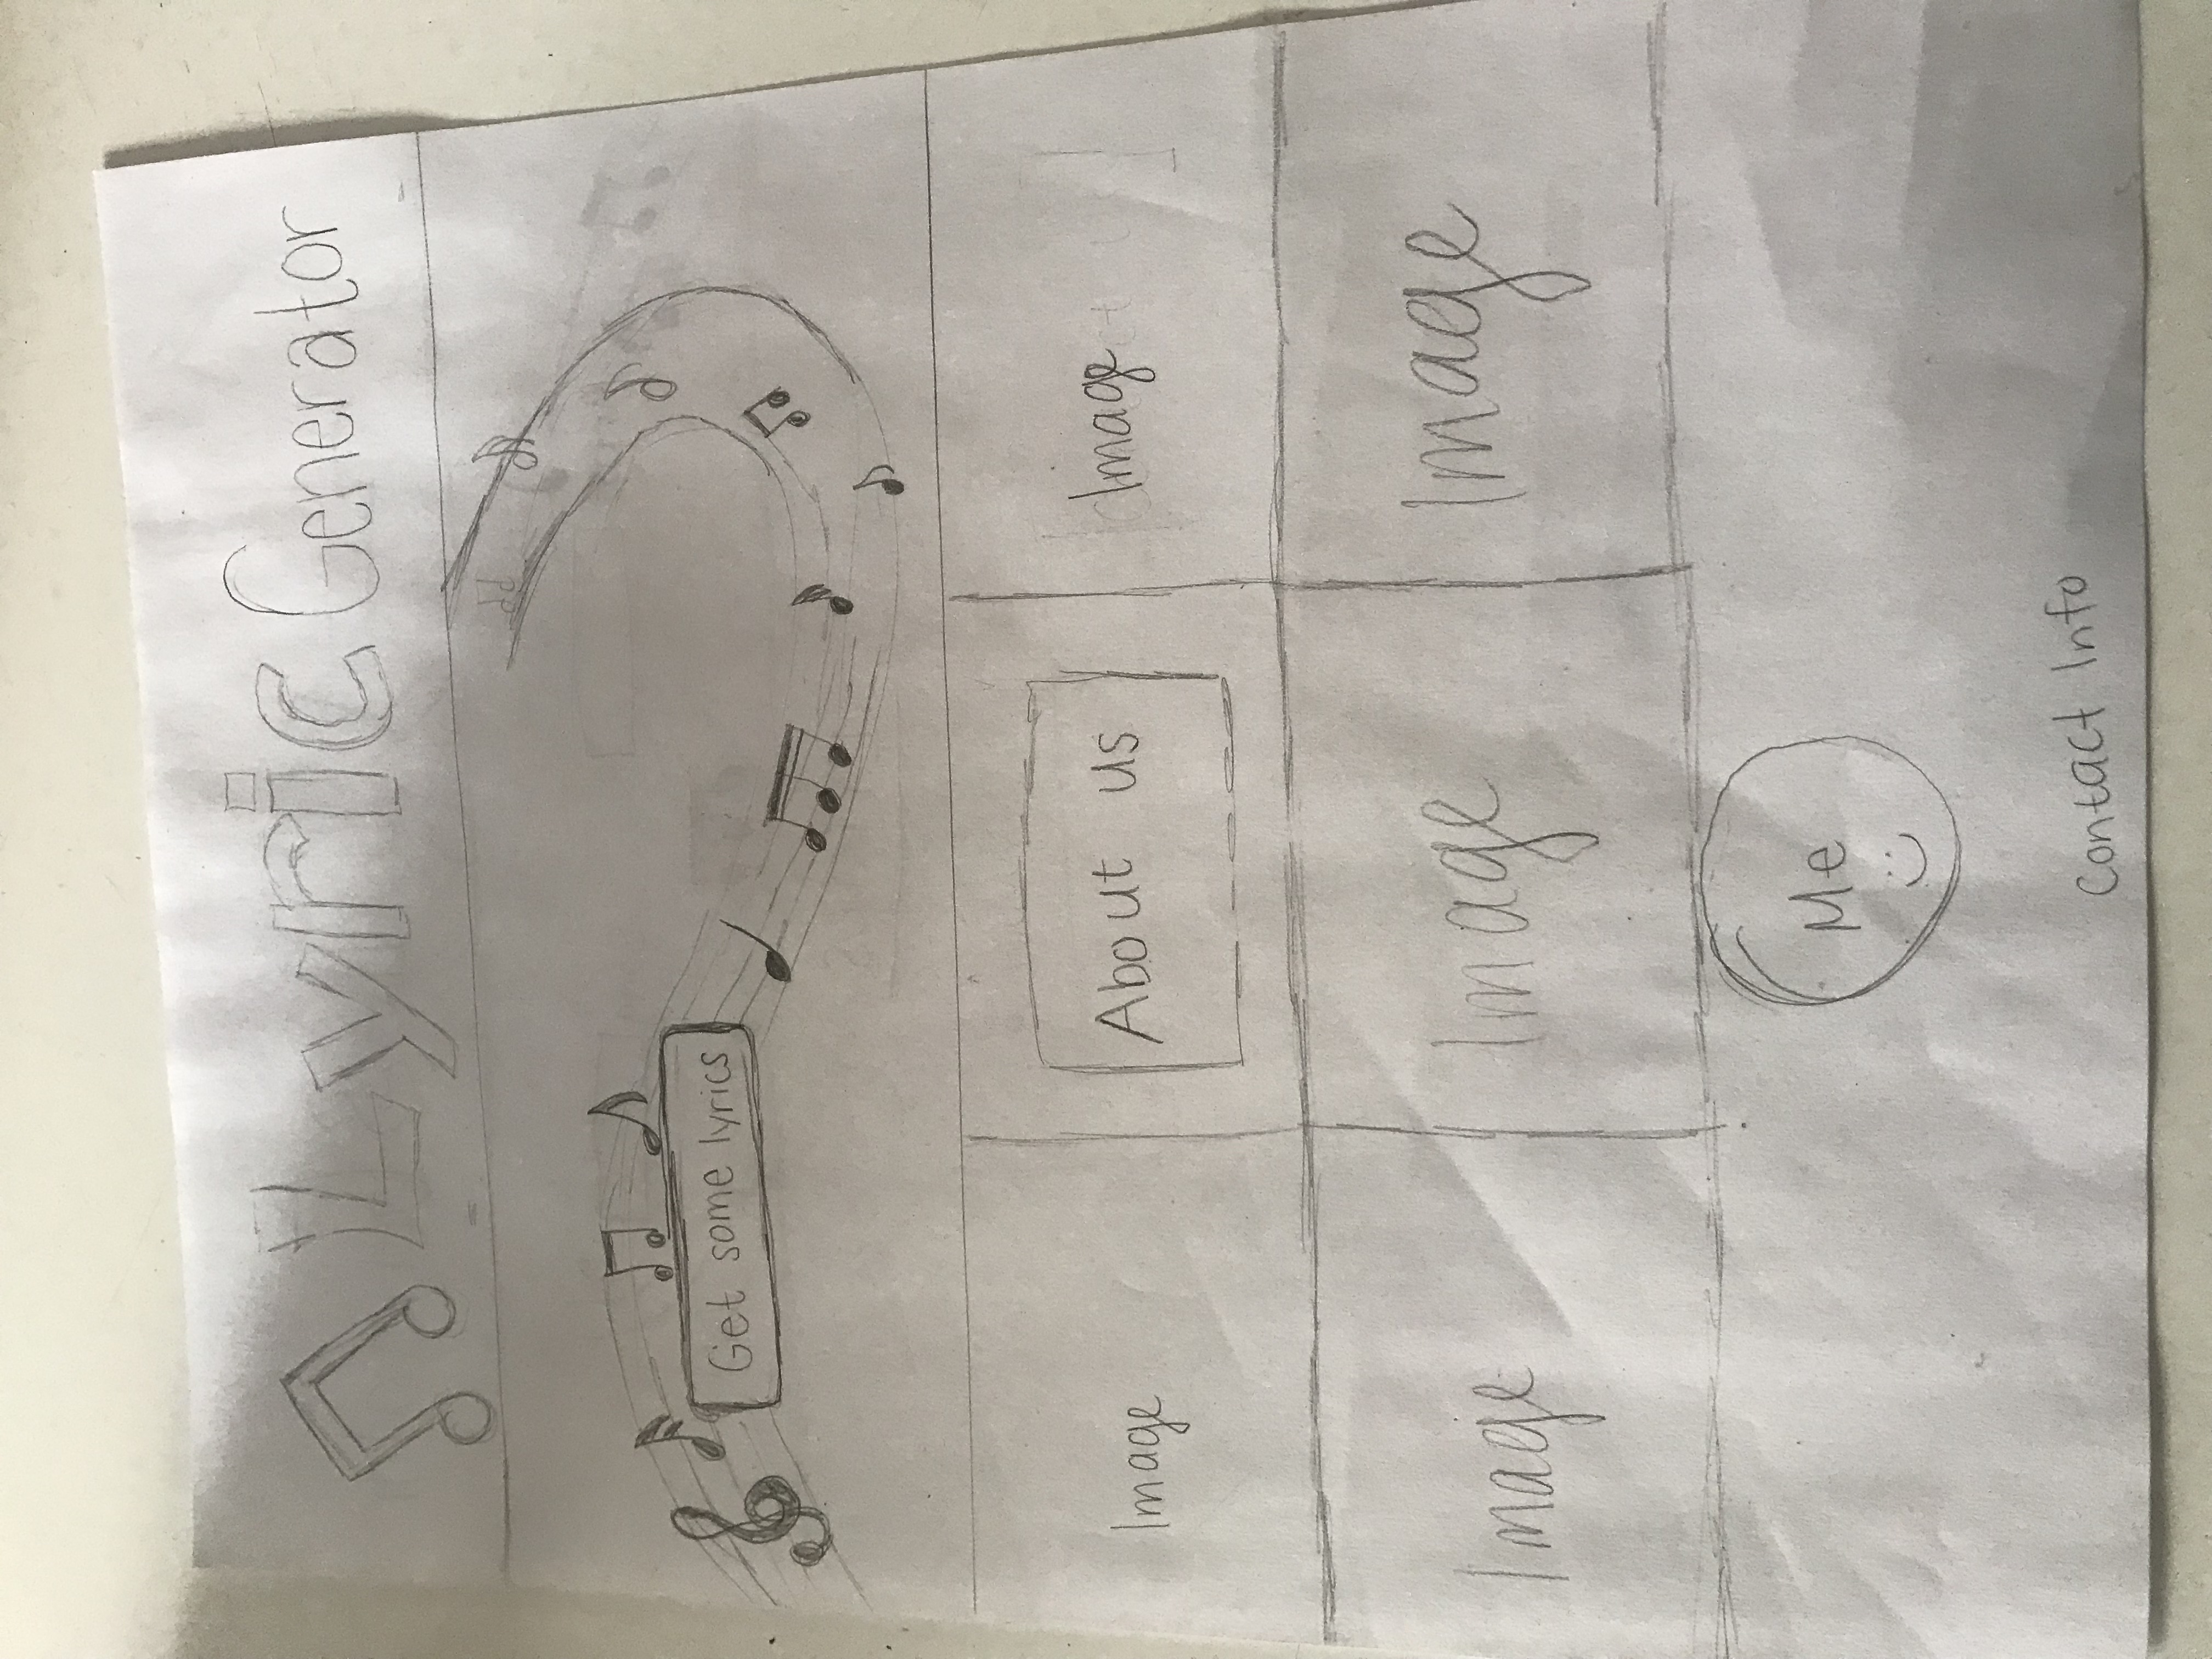 Lyric Generator
Get some lyrics
Image
About us
Image
Image
Image
Image
Me
Contact Info